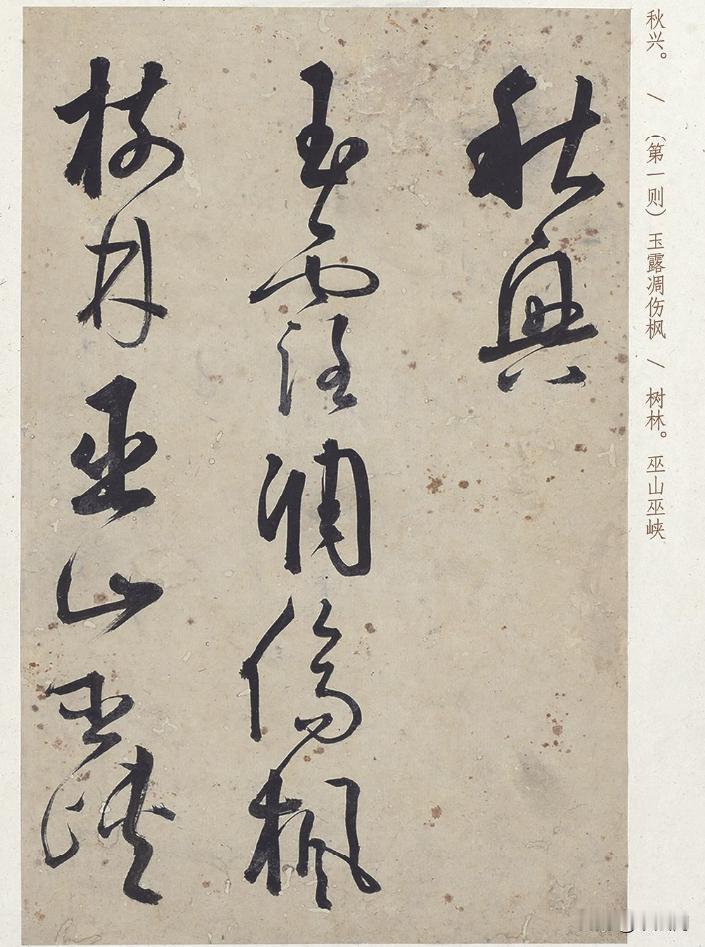 秋兴。 \ （第一则）玉露凋伤枫 \ 树林。巫山巫峡
秋興
玉露凋傷枫
樹林巫山巫峽